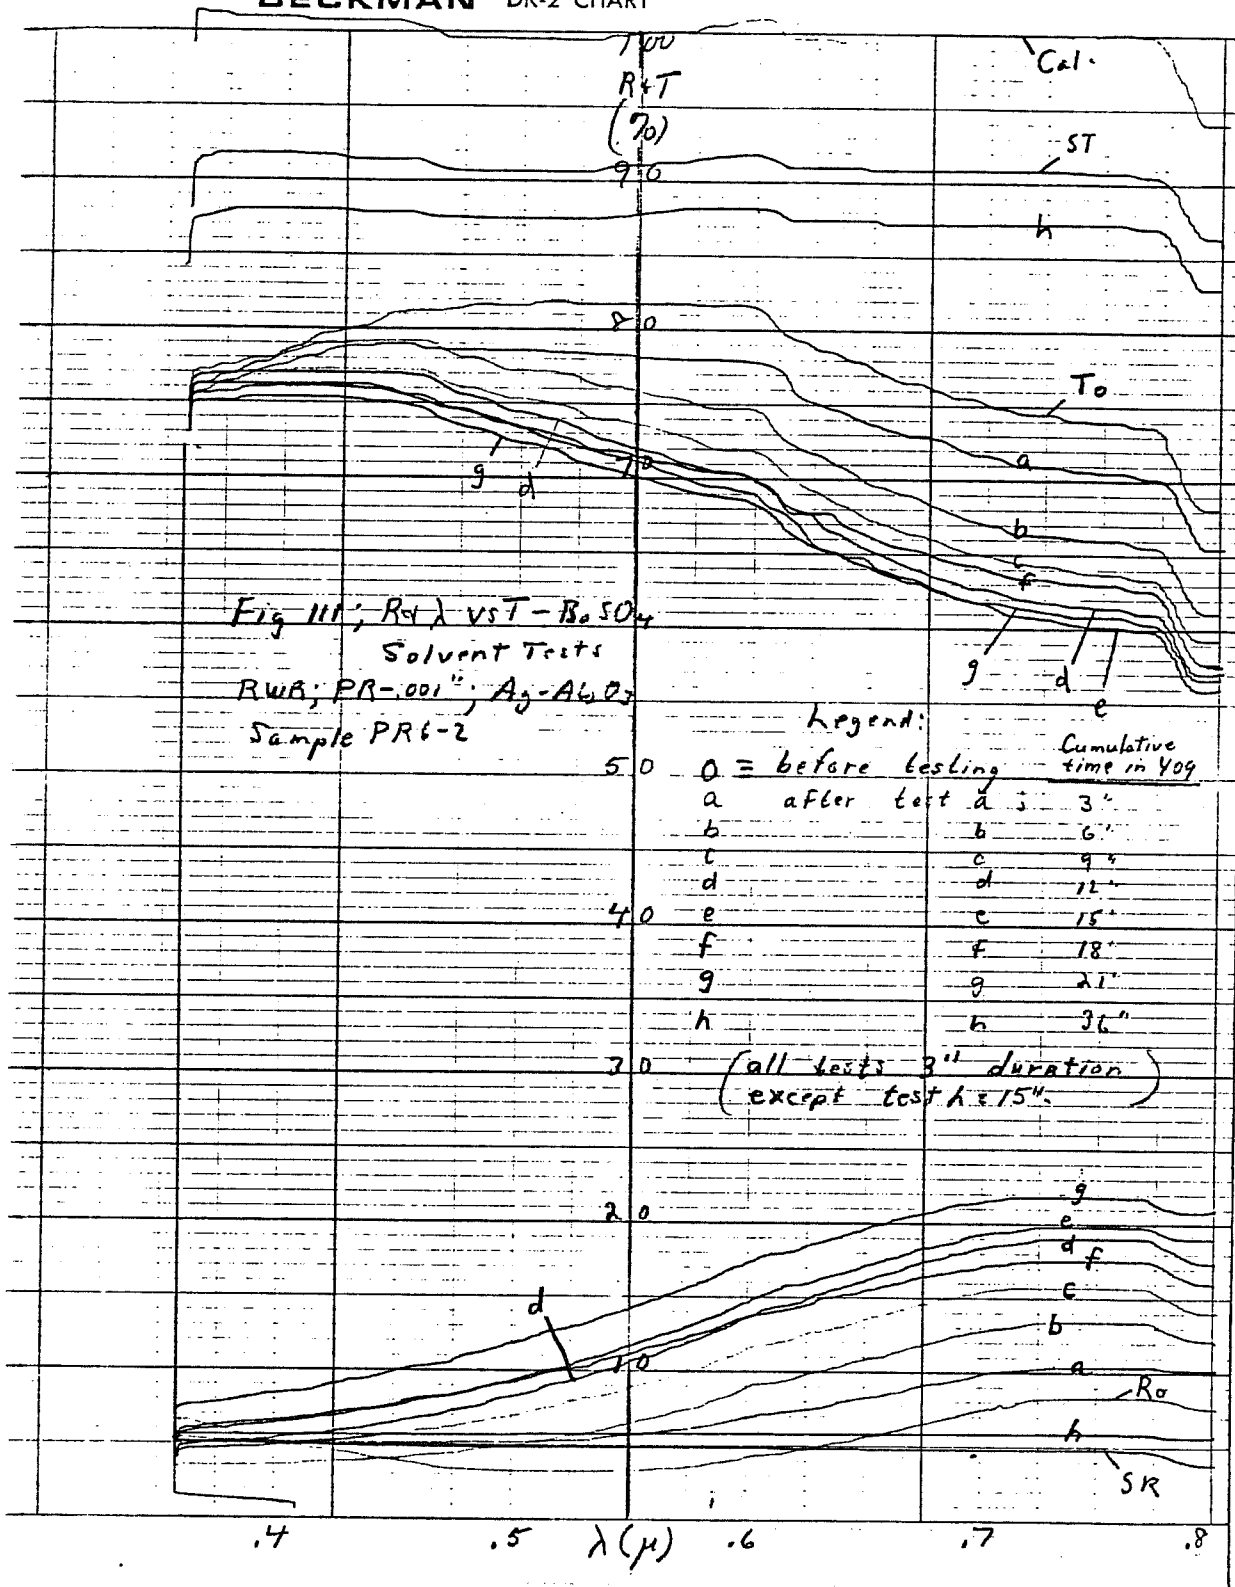 BECKMAN DK-2 CHART
100
Cal.
R+T
(%)
ST
90
h
80
To
a
g
d
70
b
c
f
Fig III; R&λ vs T - BaSO4
Solvent Tests
g
d
e
RWR; PR-.001"; Ag-Al2O3
Sample PR6-2
Legend:
Cumulative
time in 409
50
O = before testing
a after test a ; 3"
b b 6"
c c 9"
d d 12"
40
e e 15"
f f 18"
g g 21"
h h 36"
30
(all tests 3" duration
except test h = 15".)
g
20
e
d
f
d
c
b
10
a
Ro
h
SR
.4 .5 λ(μ) .6 .7 .8